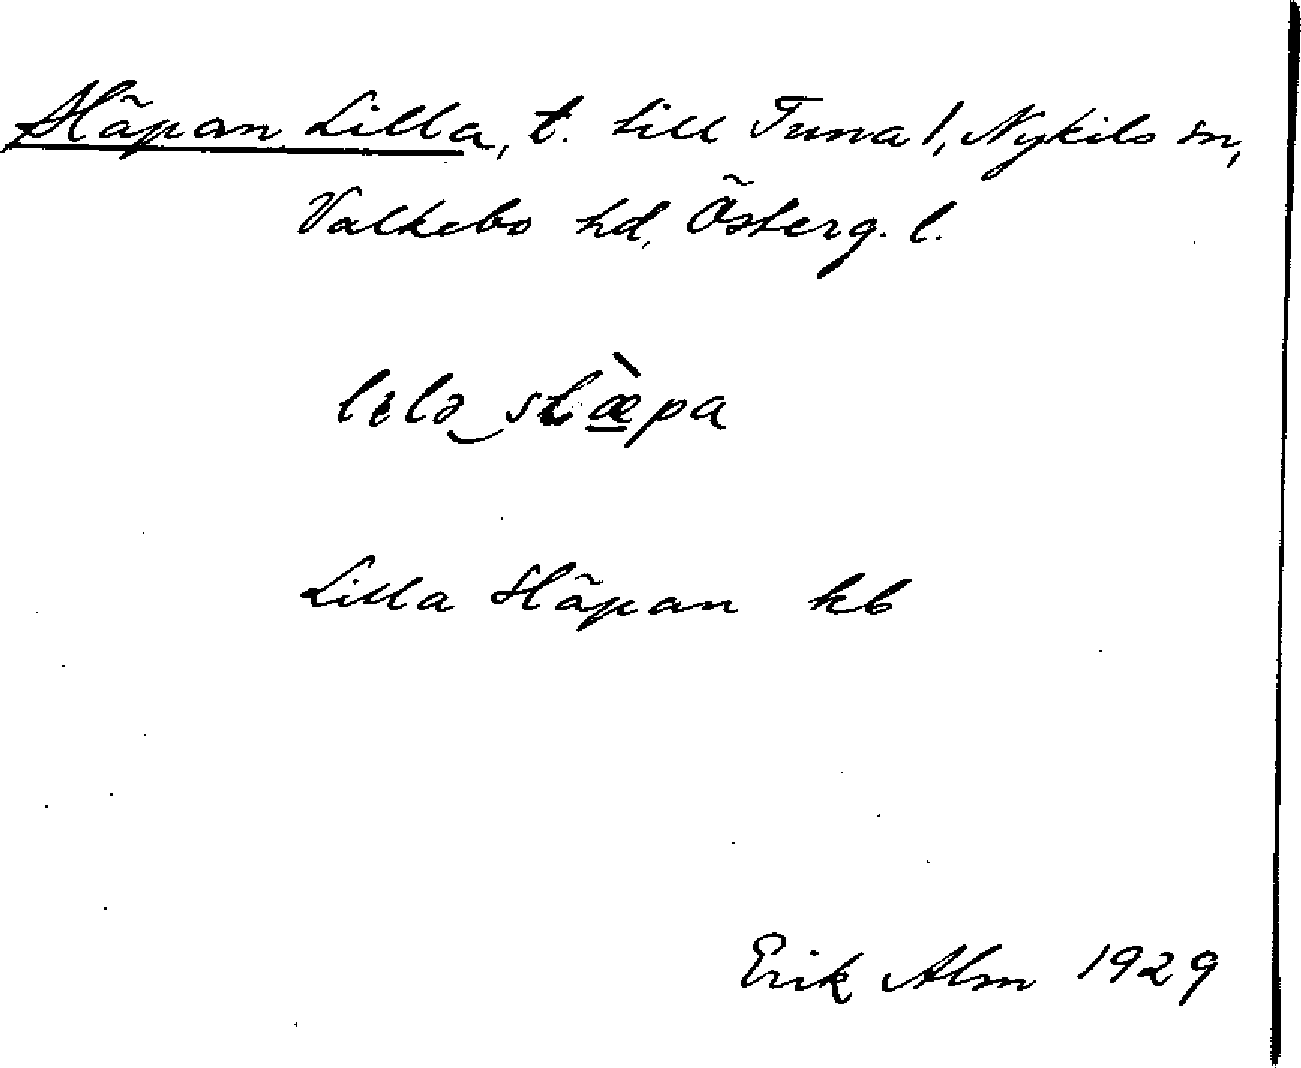 Släpan Lilla, t. till Tuna 1, Nykils sn,
Valkebo hd, Österg. l.
lɩlə‿slæ̀pa
Lilla Släpan kb
Erik Alm 1929